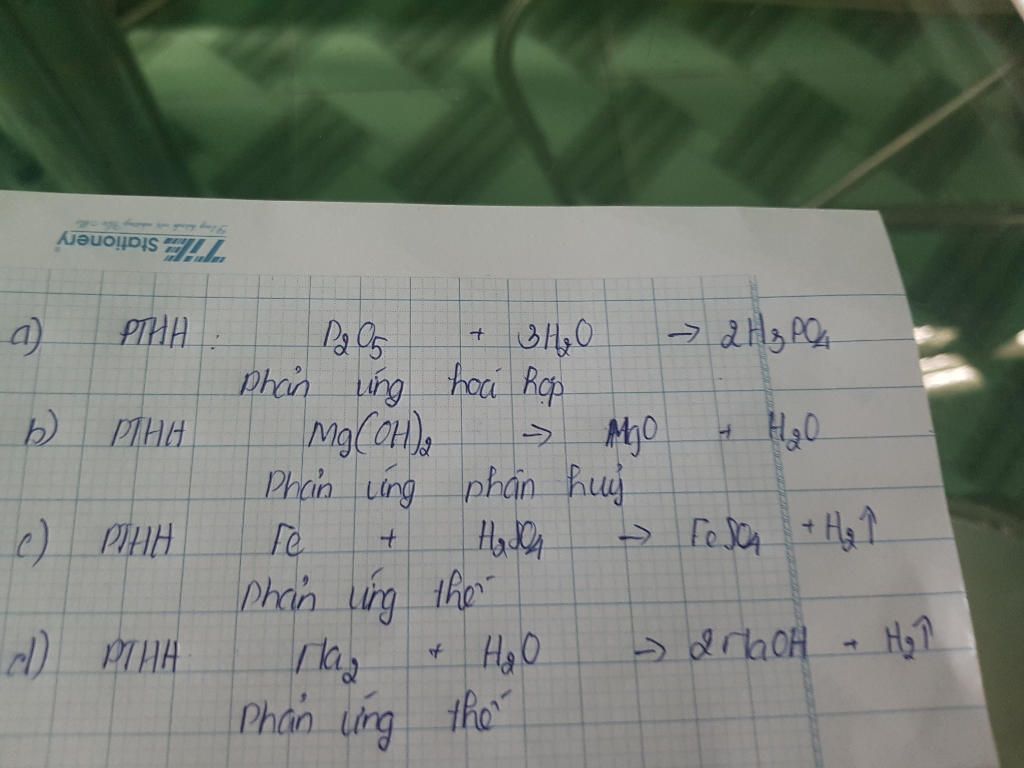 TiTi Stationery
a) PTHH : P2O5 + 3H2O → 2H3PO4
Phản ứng hoá hợp
b) PTHH Mg(OH)2 → MgO + H2O
Phản ứng phân huỷ
c) PTHH Fe + H2SO4 → FeSO4 + H2↑
Phản ứng thế
d) PTHH Na2 + H2O → 2NaOH + H2↑
Phản ứng thế